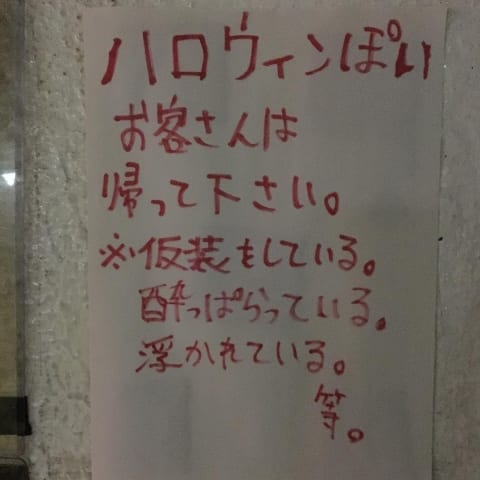 ハロウィンぽい
お客さんは
帰って下さい。
※仮装をしている。
酔っぱらっている。
浮かれている。
等。